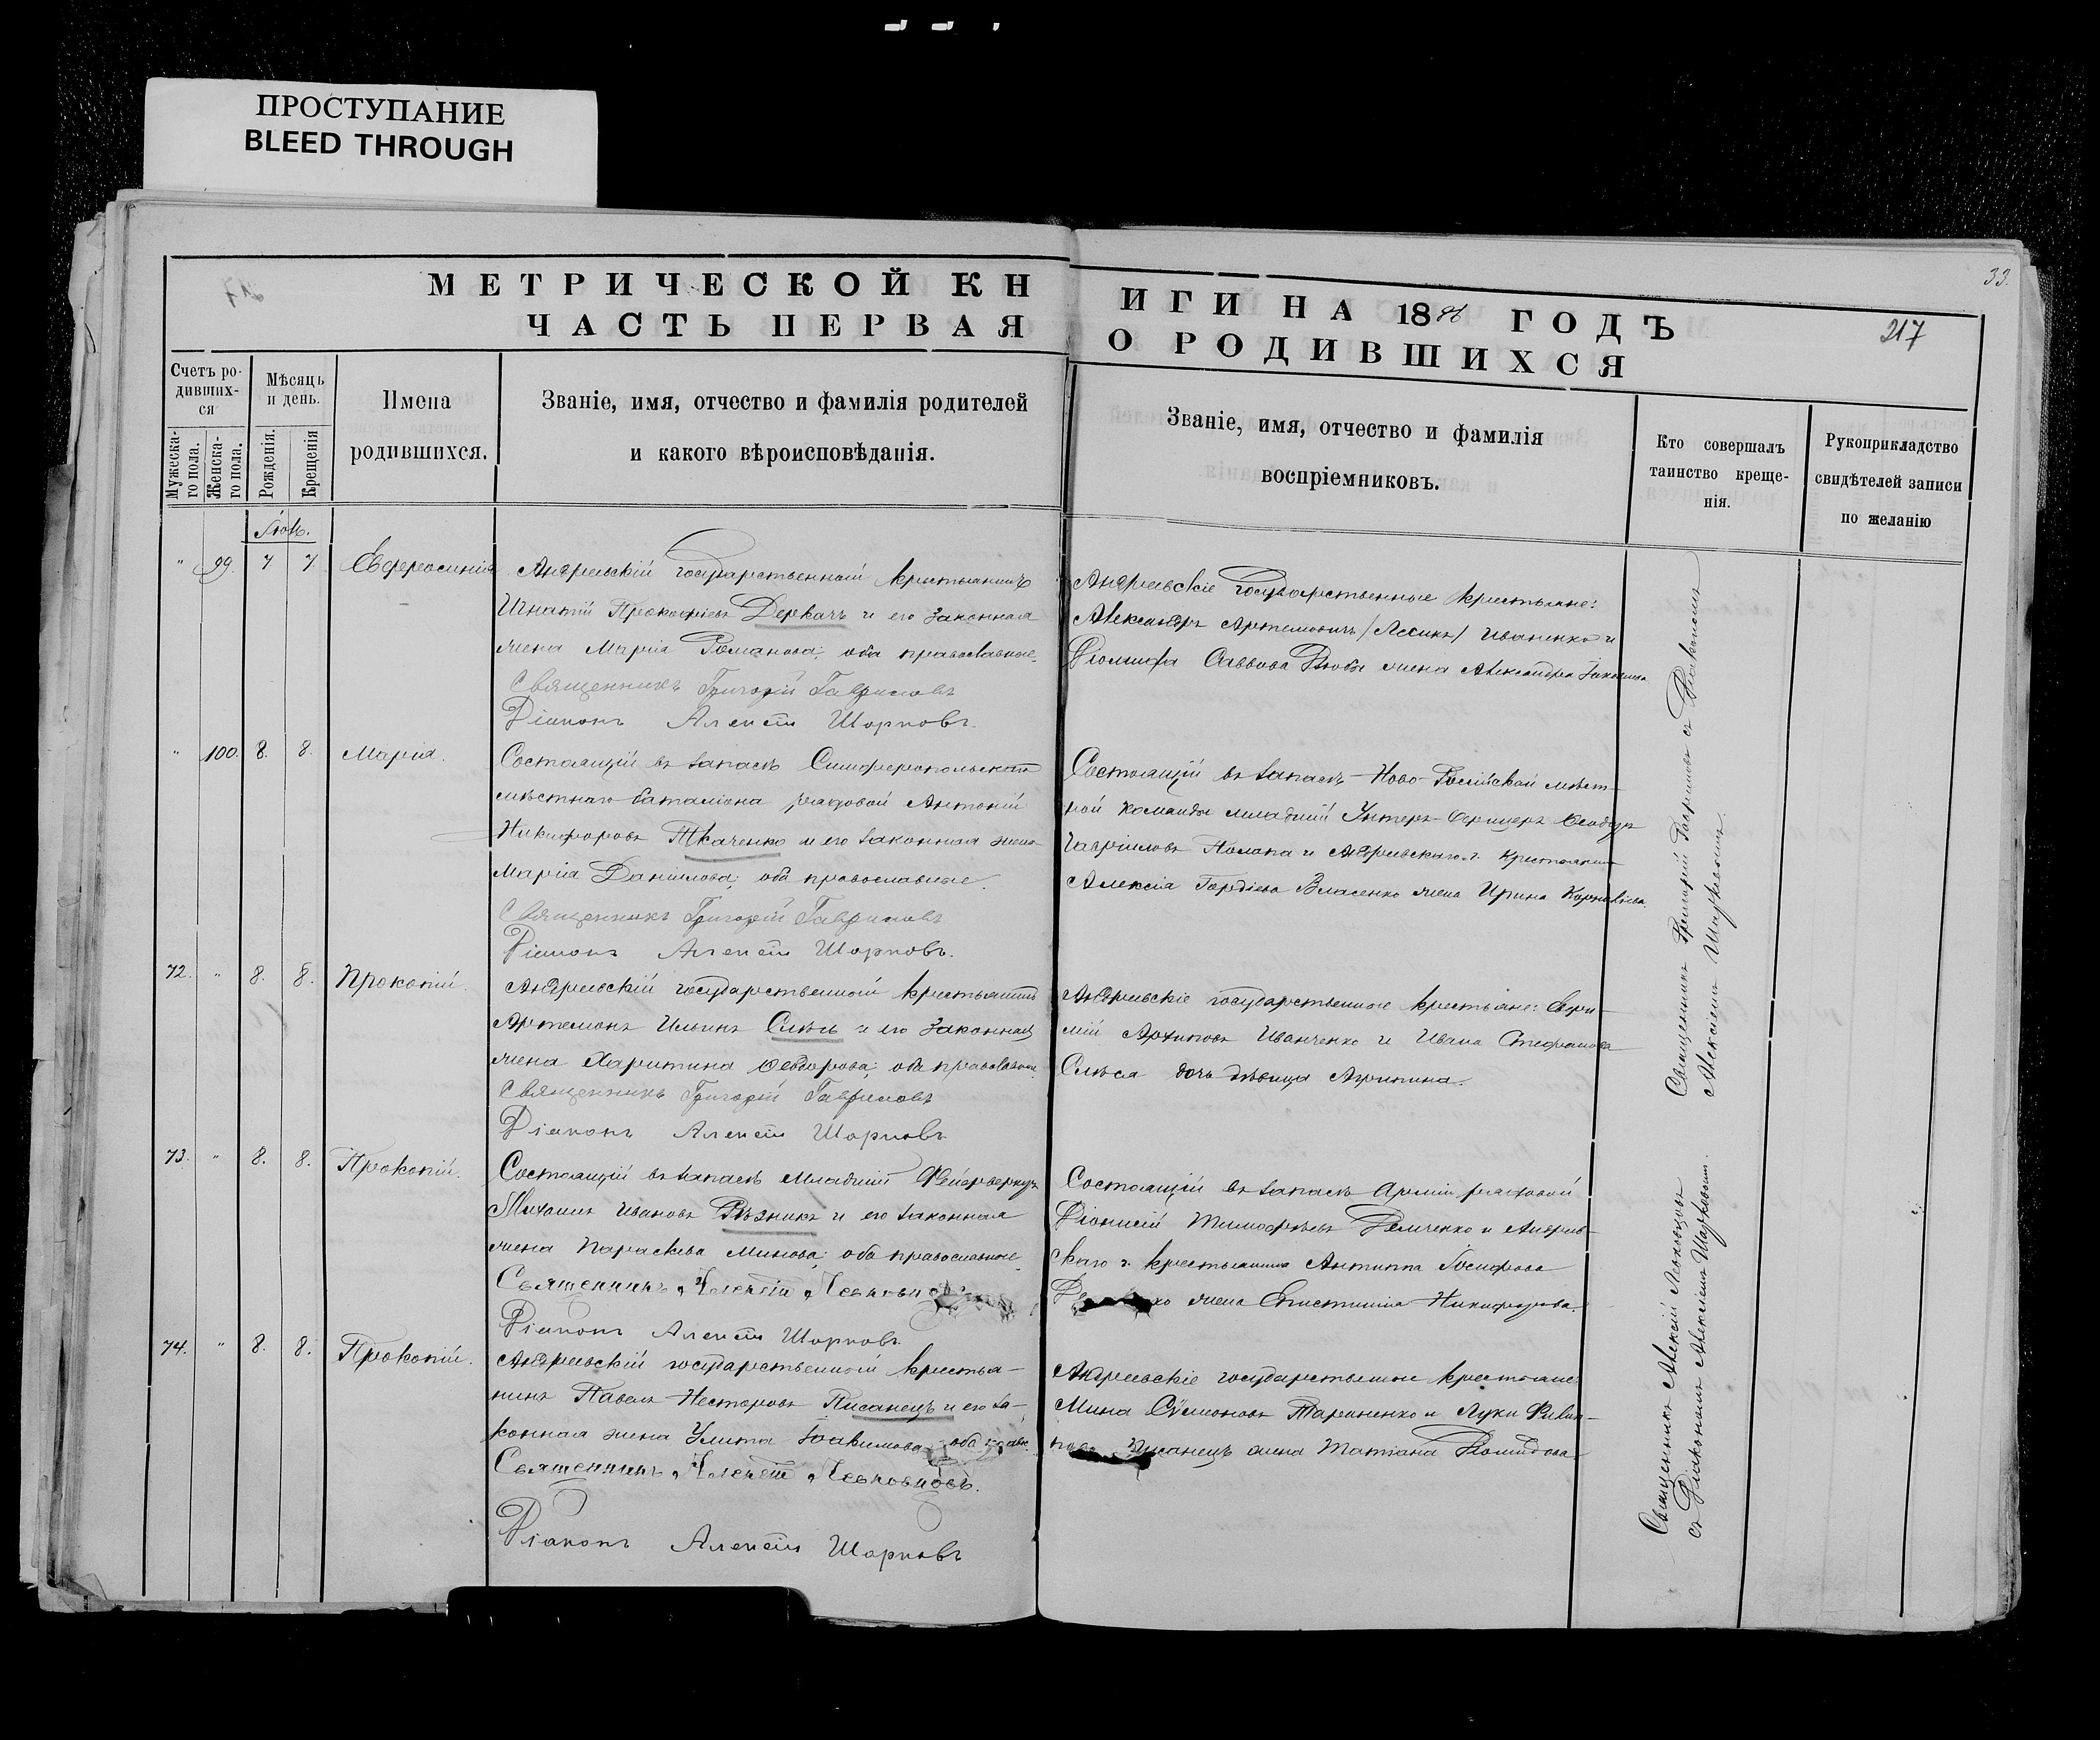 ПРОСТУПАНИЕ
BLEED THROUGH
33.
217
МЕТРИЧЕСКОЙ КНИГИ НА 18 ГОДЪ
ЧАСТЬ ПЕРВАЯ О РОДИВШИХСЯ
Счетъ ро-
дивших-
ся
Мужеска-
го пола.
Женска-
го пола.
Мѣсяцъ
и день.
Рожденія.
Крещенія
Имена
родившихся.
Званіе, имя, отчество и фамилія родителей
и какого вѣроисповѣданія.
Званіе, имя, отчество и фамилія
воспріемниковъ.
Кто совершалъ
таинство креще-
нія.
Рукоприкладство
свидѣтелей записи
по желанію
" 99. 7 7 Евфросинія
Андреевскій государственный крестьянинъ
Игнатій Прокофіевъ Деркачъ и его законная
жена Марія Романова; оба православные.
Священникъ Григорій Гавриловъ
Діаконъ Алексій Шарковъ.
Андреевскіе государственные крестьяне:
Александръ Артемовичъ Иваненко и
Саввова жена Александра
" 100. 8. 8. Марія.
Состоящій въ запасѣ Симферопольскаго
мѣстнаго баталіона рядовой Антоній
Никифоровъ Ткаченко и его законная жена
Марія Данилова; оба православные.
Священникъ Григорій Гавриловъ
Діаконъ Алексій Шарковъ.
Состоящій въ запасѣ Ново-Россійской мѣст-
ной команды младшій Унтеръ-Офицеръ Ѳеодоръ
Гавриловъ и Андреевскаго г. крестьянина
Алексія Гордіева Власенко жена Ирина
72. " 8. 8. Прокопій.
Андреевскій государственный крестьянинъ
Артемонъ Ильинъ Слѣсь и его законная
жена Харитина Ѳеодорова; оба православные
Священникъ Григорій Гавриловъ
Діаконъ Алексій Шарковъ
Андреевскіе государственные крестьяне: Ефи-
мій Архиповъ Иванченко и Ивана Стефанова
Слѣся дочь дѣвица Агрипина.
73. " 8. 8. Прокопій.
Состоящій въ запасѣ Младшій Фейерверкеръ
Михаилъ Ивановъ Рѣзникъ и его законная
жена Параскева Минова; оба православные
Священникъ Алексій
Діаконъ Алексій Шарковъ.
Состоящій въ запасѣ Арміи рядовой
Діонисій Тимофѣевъ Демченко и Андреев-
скаго г. крестьянина Антипа Іосифова
жена Никифорова.
74. " 8. 8. Прокопій.
Андреевскій государственный крестья-
нинъ Павелъ Несторовъ Писанецъ и его за-
конная жена Улита Іоакимова оба
Священникъ Алексій Левковцовъ.
Діаконъ Алексій Шарковъ
Андреевскіе государственные крестьяне
Мина Сѵмеоновъ Тараненко и Луки Филип-
Писанецъ жена Татіана
Священникъ Григорій Гавриловъ съ Діакономъ
Алексіемъ Шарковымъ.
Священникъ Алексій Левковцовъ
съ Діакономъ Алексіемъ Шарковымъ.